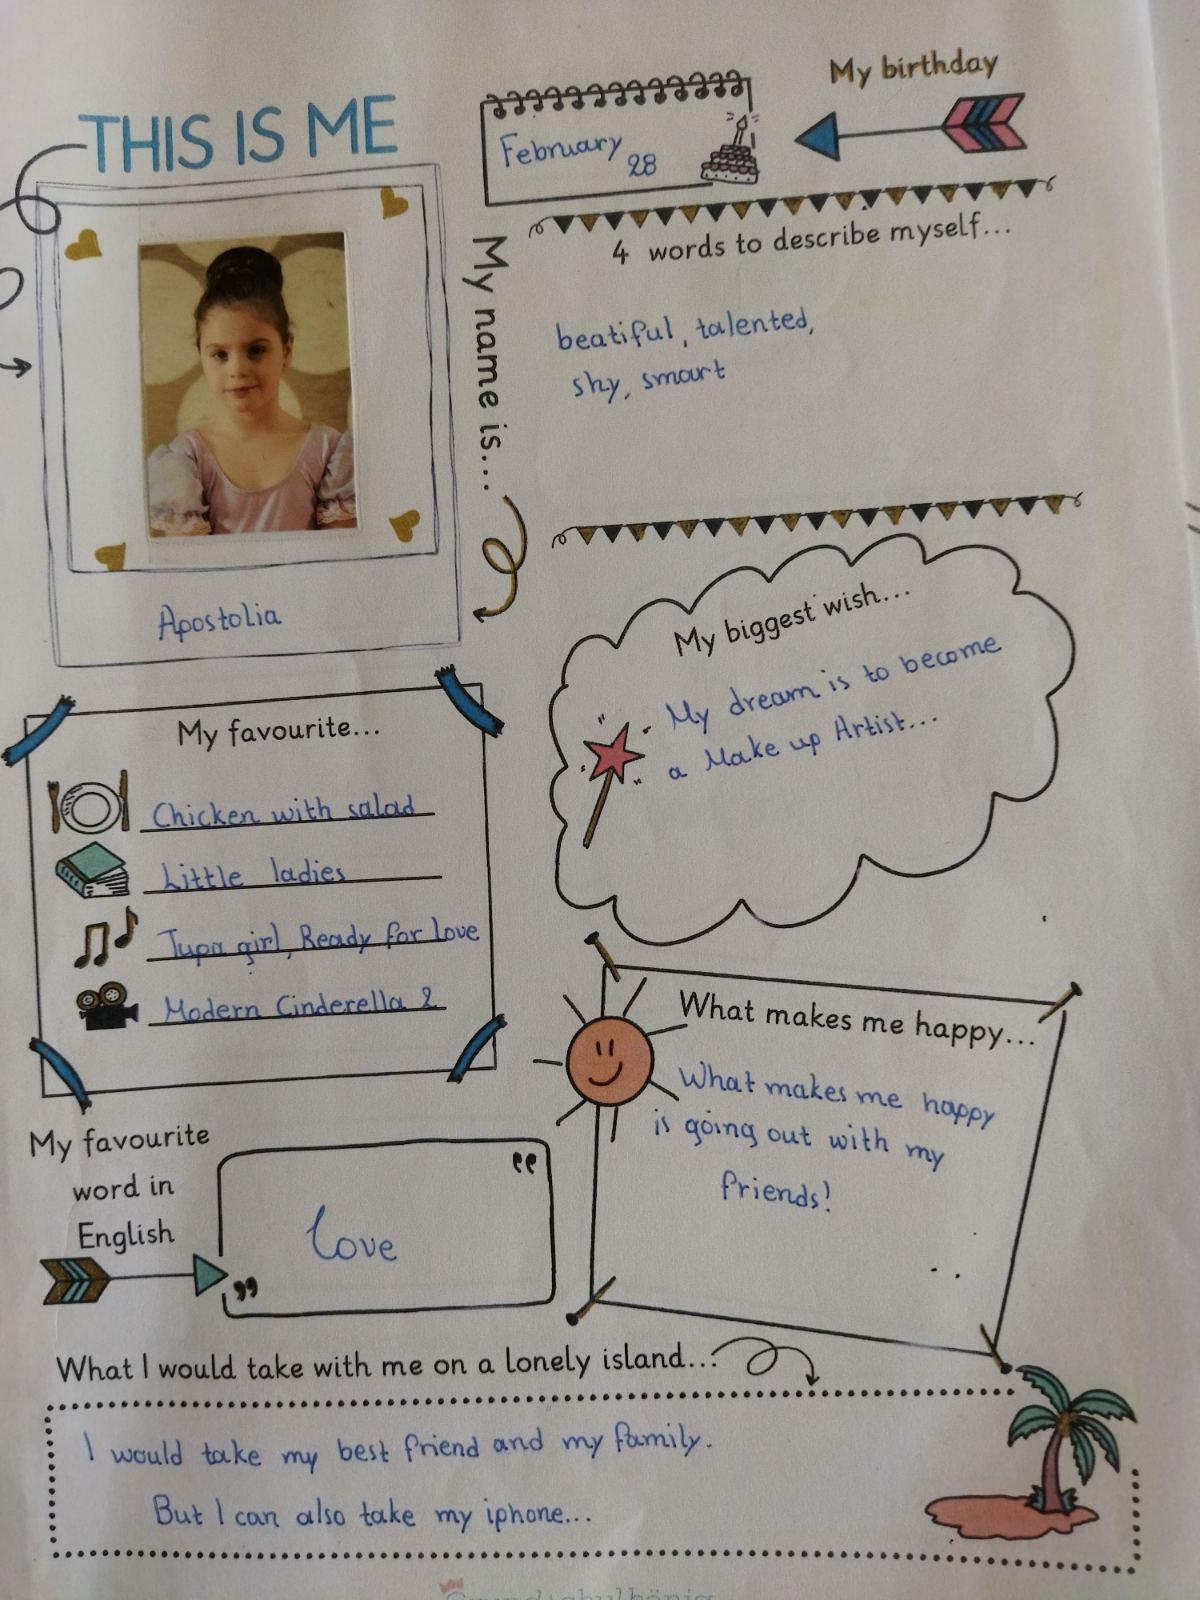 THIS IS ME
My birthday
February
28
My name is...
Apostolia
4 words to describe myself...
beatiful, talented,
shy, smart
My biggest wish...
My dream is to become
a Make up Artist...
My favourite...
Chicken with salad
Little ladies
Tupa girl, Ready for love
Modern Cinderella 2
What makes me happy...
What makes me happy
is going out with my
friends!
My favourite
word in
English
love
What I would take with me on a lonely island...
I would take my best friend and my family.
But I can also take my iphone...